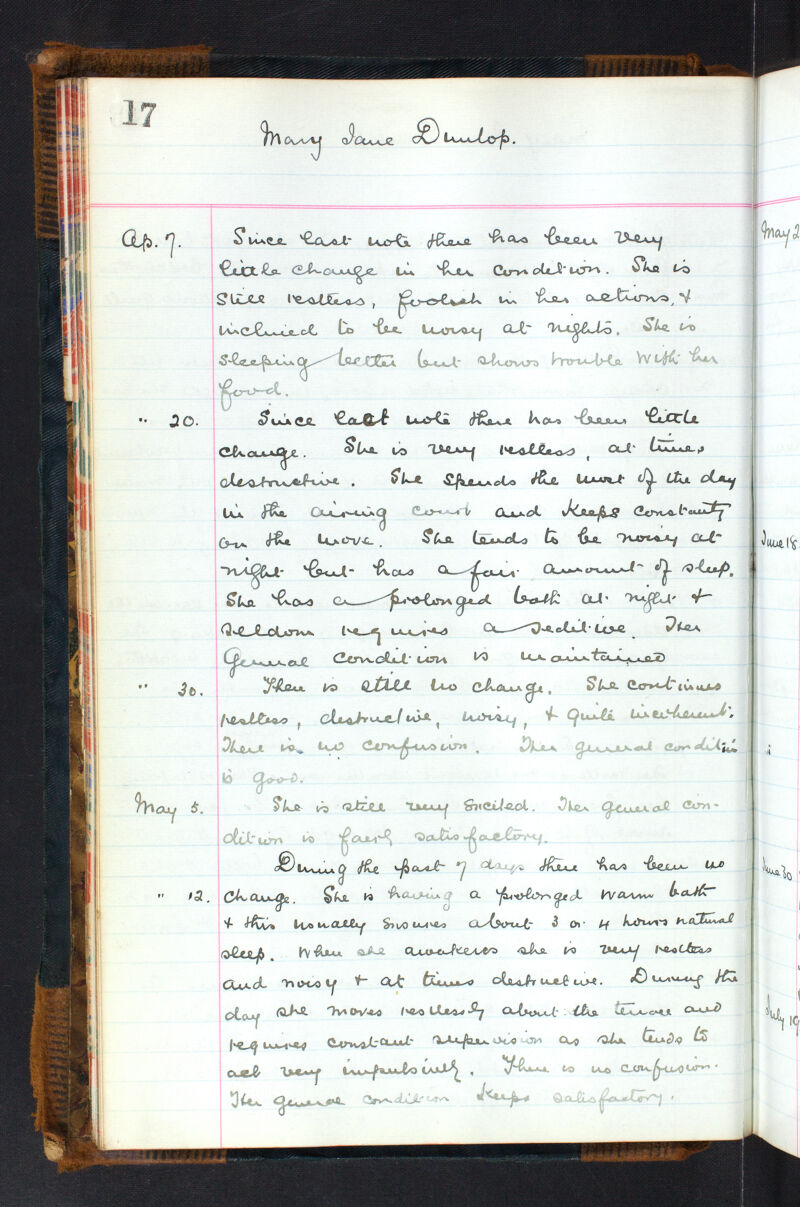 17
Mary Jane Dunlop.
Ap. 7. Since last note there has been very
little change in her condition. She is
still restless, foolish in her actions, &
inclined to be noisy at nights. She is
sleeping better but shows trouble with her
food.
" 20. Since last note there has been little
change. She is very restless, at times
destructive. She spends the most of the day
in the airing court and keeps constantly
on the move. She tends to be noisy at
night but has a fair amount of sleep.
She has a prolonged bath at night &
seldom requires a seditive. Her
General condition is maintained
" 30. There is still no change. She continues
restless, destructive, noisy, & quite incoherent.
There is no confusion. Her general condition
is good.
May 5. She is still very excited. Her general con-
dition is fairly satisfactory.
During the past 7 days there has been no
" 12. change. She is having a prolonged warm bath
& this usually ensures about 3 or 4 hours natural
sleep. When she awakens she is very restless
and noisy & at times destructive. During the
day she moves restlessly about the terrace and
requires constant supervision as she tends to
act very impulsively. There is no confusion.
Her general condition keeps satisfactory.
May 2
June 18
June 30
July 19